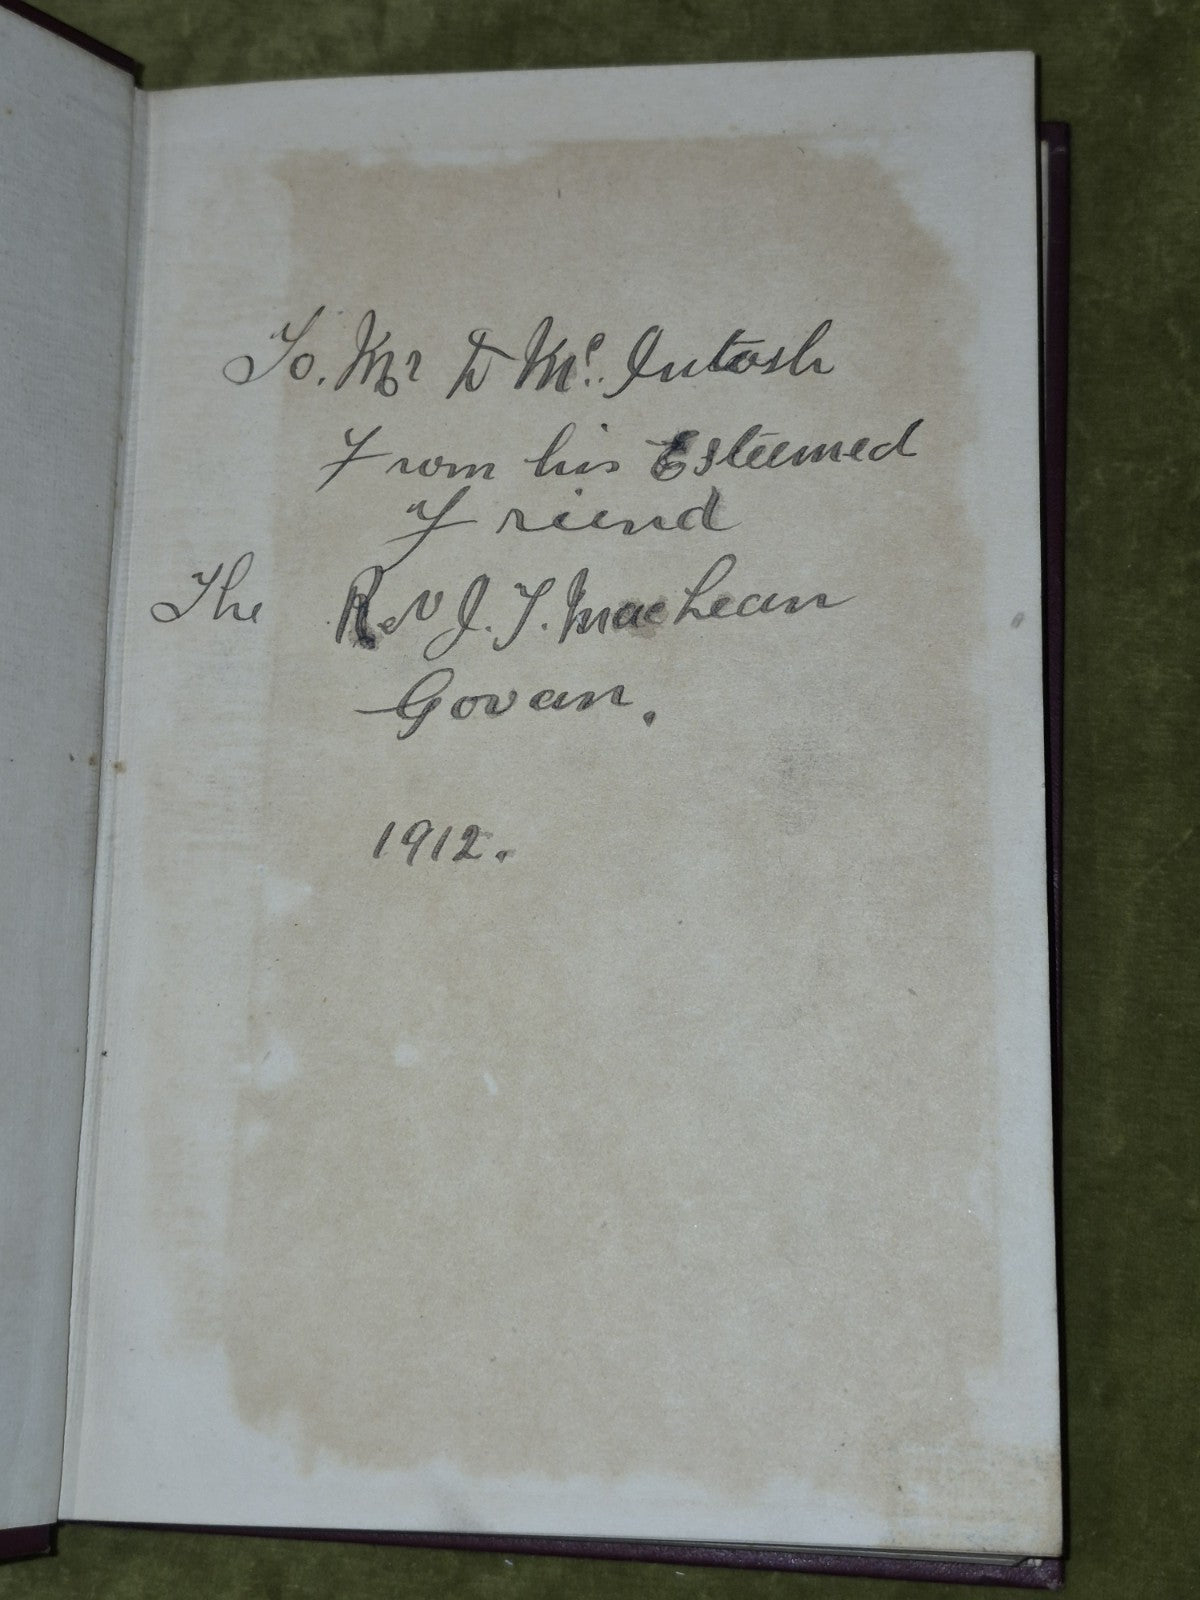 To. Mr D Mc. Intosh
From his Esteemed
Friend
The Rev J. T. MacLean
Govan.
1912.